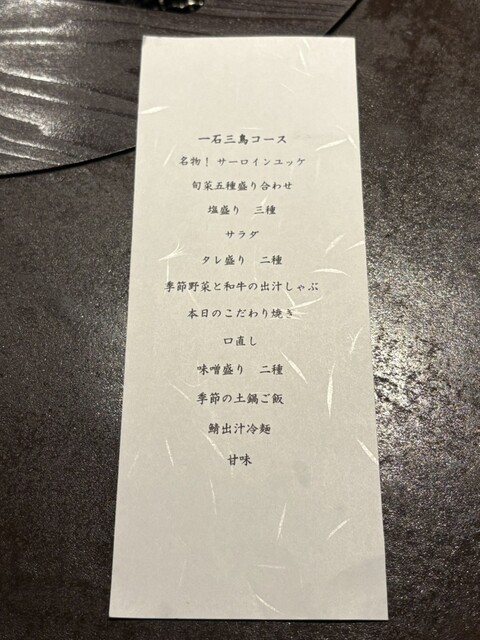 一石三鳥コース
名物！ サーロインユッケ
旬菜五種盛り合わせ
塩盛り　三種
サラダ
タレ盛り　二種
季節野菜と和牛の出汁しゃぶ
本日のこだわり焼き
口直し
味噌盛り　二種
季節の土鍋ご飯
鯛出汁冷麺
甘味